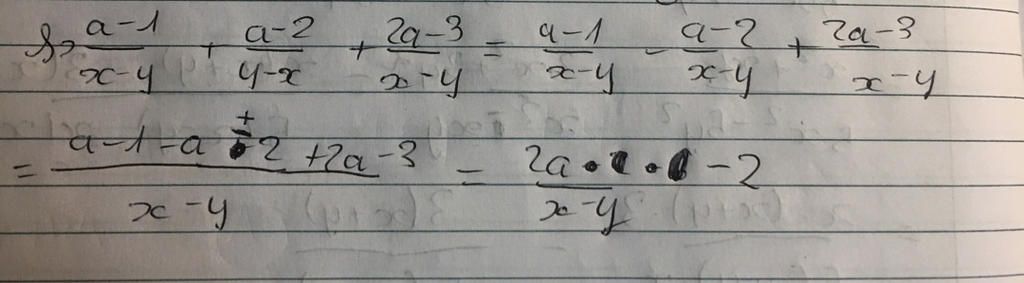 b) \frac{a-1}{x-y} + \frac{a-2}{y-x} + \frac{2a-3}{x-y} = \frac{a-1}{x-y} - \frac{a-2}{x-y} + \frac{2a-3}{x-y}
= \frac{a-1-a+2+2a-3}{x-y} = \frac{2a-2}{x-y}